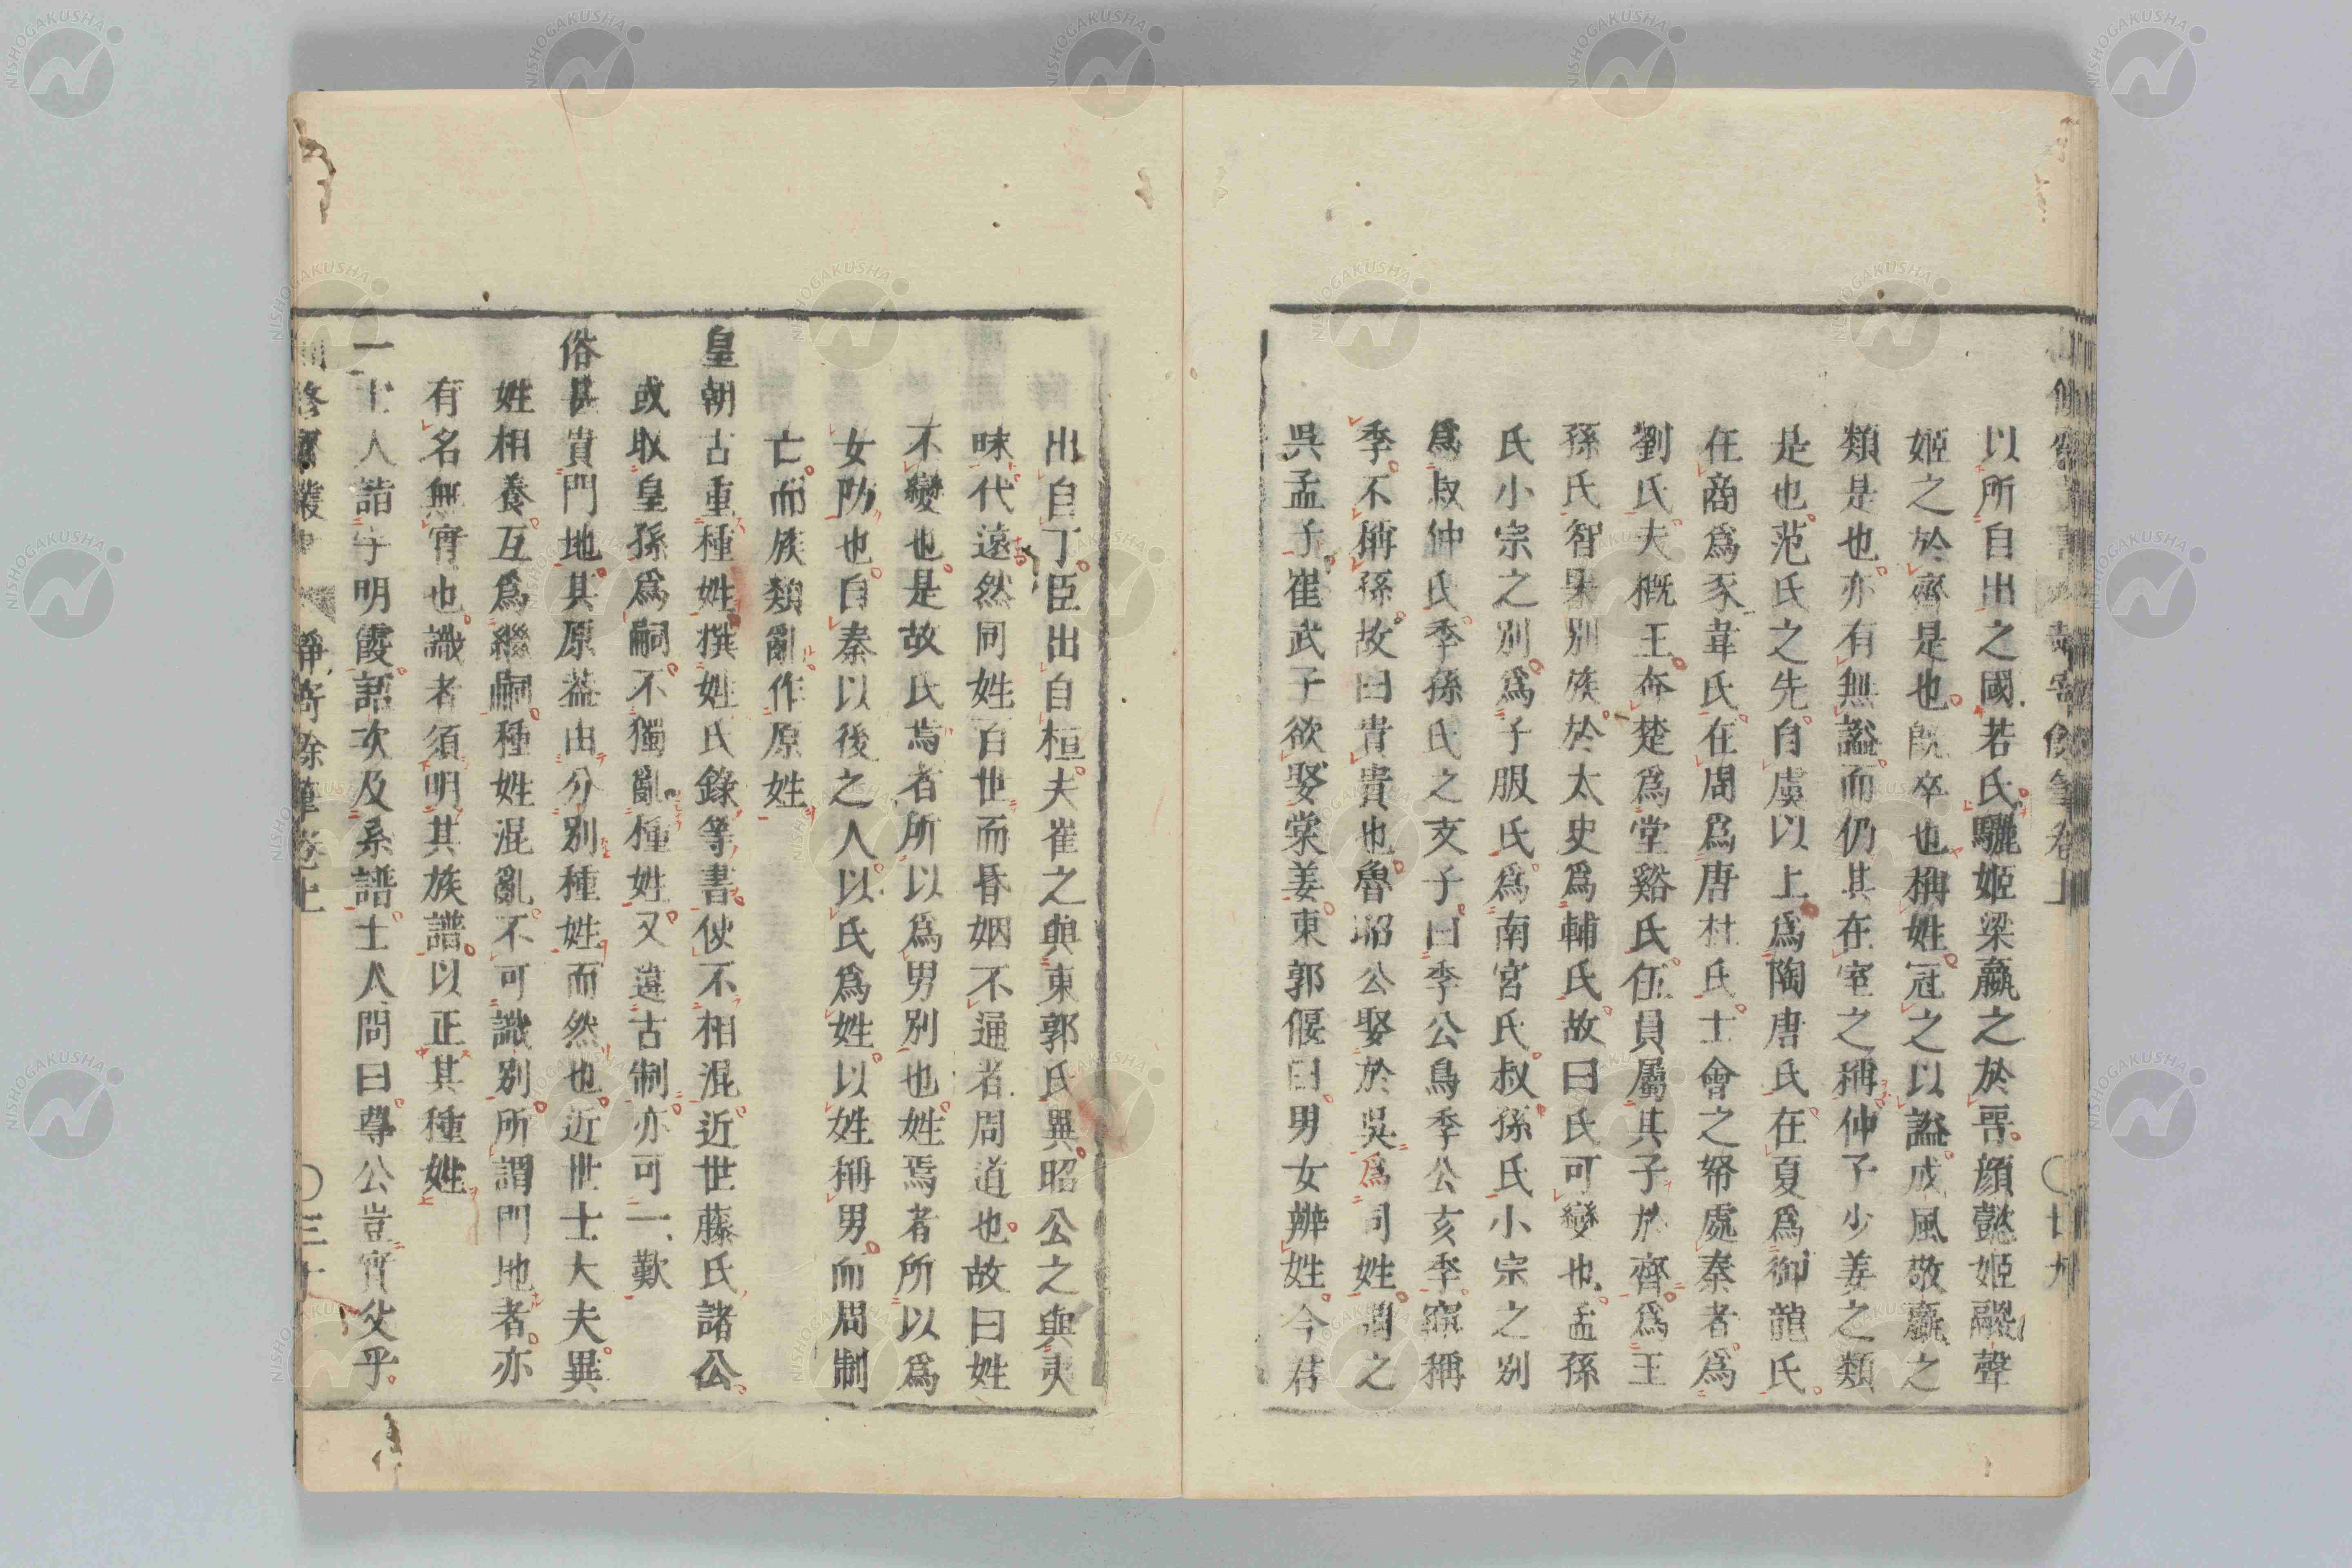 以所自出之國若氏驪姬梁嬴之於晉顏懿姬鬷聲
姬之於齊是也旣卒也稱姓冠之以謚成風敬嬴之
類是也亦有無謚而仍其在室之稱仲子少姜之類
是也范氏之先自虞以上爲陶唐氏在夏爲御龍氏
在商爲豕韋氏在周爲唐杜氏士會之帑處秦者爲
劉氏夫概王奔楚爲堂谿氏伍員屬其子於齊爲王
孫氏智果別族於太史爲輔氏故曰氏可變也孟孫
氏小宗之別爲子服氏爲南宮氏叔孫氏小宗之別
爲叔仲氏季孫氏之支子曰季公鳥季公亥季寤稱
季不稱孫故曰貴貴也魯昭公娶於吳爲同姓謂之
吳孟子崔武子欲娶棠姜東郭偃曰男女辨姓今君
出自丁臣出自桓夫崔之與東郭氏異昭公之與夷
昧代遠然同姓百世而昏姻不通者周道也故曰姓
不變也是故氏焉者所以爲男別也姓焉者所以爲
女防也自秦以後之人以氏爲姓以姓稱男而周制
亡而族類亂作原姓
皇朝古重種姓撰姓氏錄等書使不相混近世藤氏諸公
或取皇孫爲嗣不獨亂種姓又違古制亦可一歎
俗甚貴門地其原蓋由分別種姓而然也近世士大夫異
姓相養互爲繼嗣種姓混亂不可識別所謂門地者亦
有名無實也識者須明其族譜以正其種姓
一士人詣宇明霞語次及系譜士人問曰尊公豈實父乎
靜寄餘筆卷上
三十
NISHOGAKUSHA